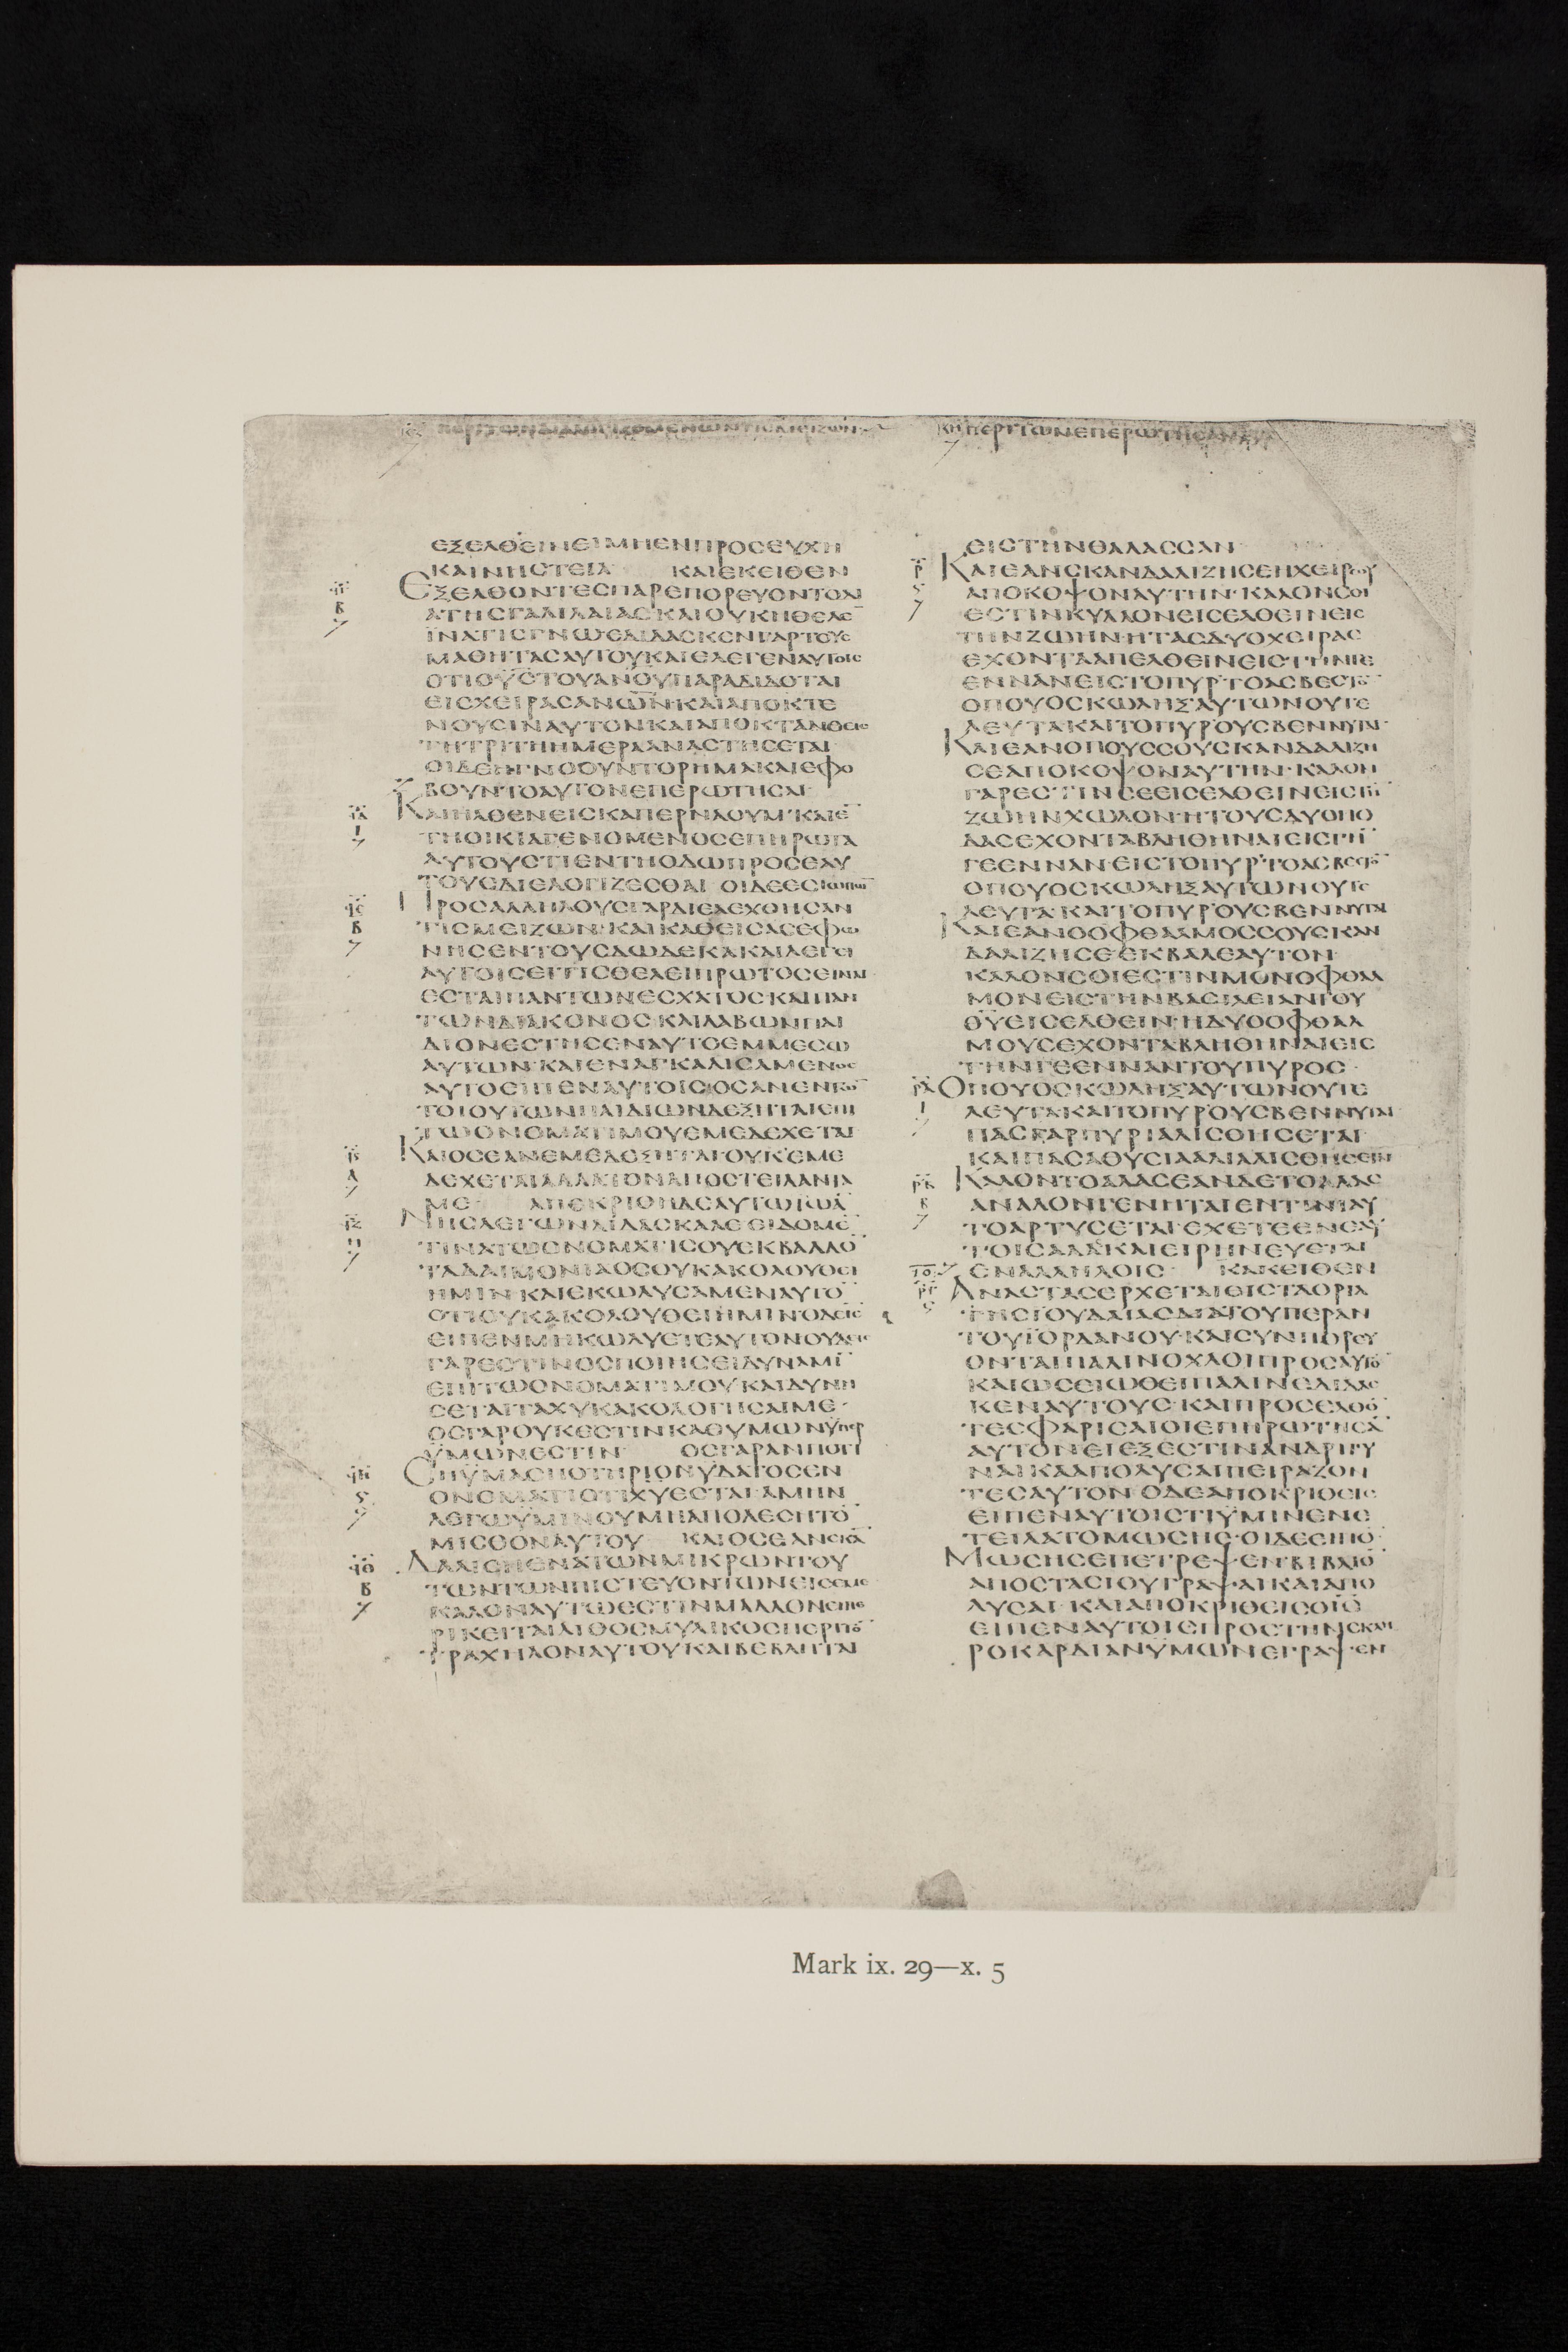 ΕΞΕΛΘΕΙΝΕΙΜΗΕΝΠΡΟΣΕΥΧΗ
ΚΑΙΝΗΣΤΕΙΑ ΚΑΙΕΚΕΙΘΕΝ
ΕΞΕΛΘΟΝΤΕΣΠΑΡΕΠΟΡΕΥΟΝΤΟΔΙ
ΑΤΗΣΓΑΛΙΛΑΙΑΣΚΑΙΟΥΚΗΘΕΛΕ¯
ΜΑΘΗΤΑΣΑΥΤΟΥΚΑΙΕΛΕΓΕΝΑΥΤΟΙΣ
ΟΤΙΟΥΣΤΟΥΑΝΟΥΠΑΡΑΔΙΔΟΤΑΙ
ΕΙΣΧΕΙΡΑΣΑΝΩΝΚΑΙΑΠΟΚΤΕ
ΝΟΥΣΙΝΑΥΤΟΝΚΑΙΑΠΟΚΤΑΝΘΕΙΣ
ΤΗΤΡΙΤΗΗΜΕΡΑΑΝΑΣΤΗΣΕΤΑΙ
ΟΙΔΕΗΓΝΟΟΥΝΤΟΡΗΜΑΚΑΙΕΦΟ
ΒΟΥΝΤΟΑΥΤΟΝΕΠΕΡΩΤΗΣΑΙ
ΚΑΙΗΛΘΕΝΕΙΣΚΑΠΕΡΝΑΟΥΜ·ΚΑΙΕ¯
ΤΗΟΙΚΙΑΓΕΝΟΜΕΝΟΣΕΠΗΡΩΤΑ
ΑΥΤΟΥΣΤΙΕΝΤΗΟΔΩΠΡΟΣΕΑΥ
ΤΟΥΣΔΙΕΛΟΓΙΖΕΣΘΑΙ ΟΙΔΕΕΣΙΩΠΩ¯
ΠΡΟΣΑΛΛΗΛΟΥΣΓΑΡΔΙΕΛΕΧΘΗΣΑΝ
ΤΙΣΜΕΙΖΩΝ·ΚΑΙΚΑΘΕΙΣΑΣΕΦΩ
ΝΗΣΕΝΤΟΥΣΔΩΔΕΚΑΚΑΙΛΕΓΕΙ
ΑΥΤΟΙΣΕΙΤΙΣΘΕΛΕΙΠΡΩΤΟΣΕΙΝΑΙ
ΕΣΤΑΙΠΑΝΤΩΝΕΣΧΑΤΟΣ·ΚΑΙΠΑΝ
ΤΩΝΔΙΑΚΟΝΟΣ·ΚΑΙΛΑΒΩΝΠΑΙ
ΔΙΟΝΕΣΤΗΣΕΝΑΥΤΟΕΜΜΕΣΩ
ΑΥΤΩΝ·ΚΑΙΕΝΑΓΚΑΛΙΣΑΜΕΝΟΣ
ΤΟΙΟΥΤΩΝΠΑΙΔΙΩΝΔΕΞΗΤΑΙΕΠΙ
ΤΩΟΝΟΜΑΤΙΜΟΥΕΜΕΔΕΧΕΤΑΙ
ΚΑΙΟΣΕΑΝΕΜΕΔΕΞΗΤΑΙΟΥΚΕΜΕ
ΔΕΧΕΤΑΙΑΛΛΑΤΟΝΑΠΟΣΤΕΙΛΑΝΤΑ
ΜΕ ΑΠΕΚΡΙΘΗΔΕΑΥΤΩΙΩΑ¯
ΝΗΣΛΕΓΩΝΔΙΔΑΣΚΑΛΕ ΕΙΔΟΜΕ¯
ΤΙΝΑΤΩΟΝΟΜΑΤΙΣΟΥΕΚΒΑΛΛΟ¯
ΤΑΔΑΙΜΟΝΙΑΟΣΟΥΚΑΚΟΛΟΥΘΕΙ
ΗΜΙΝ·ΚΑΙΕΚΩΛΥΣΑΜΕΝΑΥΤΟ¯
ΟΤΙΟΥΚΑΚΟΛΟΥΘΕΙΗΜΙΝ·ΟΔΕΙΣ
ΕΙΠΕΝΜΗΚΩΛΥΕΤΕΑΥΤΟΝΟΥΔΕΙΣ
ΓΑΡΕΣΤΙΝΟΣΠΟΙΗΣΕΙΔΥΝΑΜΙ¯
ΕΠΙΤΩΟΝΟΜΑΤΙΜΟΥΚΑΙΔΥΝΗ
ΣΕΤΑΙΤΑΧΥΚΑΚΟΛΟΓΗΣΑΙΜΕ·
ΟΣΓΑΡΟΥΚΕΣΤΙΝΚΑΘΥΜΩΝΫΠΕΡ
ΫΜΩΝΕΣΤΙΝ ΟΣΓΑΡΑΝΠΟΤΙ
ΣΗΫΜΑΣΠΟΤΗΡΙΟΝΫΔΑΤΟΣΕΝ
ΛΕΓΩΫΜΙΝΟΥΜΗΑΠΟΛΕΣΗΤΟ¯
ΜΙΣΘΟΝΑΥΤΟΥ ΚΑΙΟΣΕΑΝΣΚΑ¯
ΔΑΛΙΣΗΕΝΑΤΩΝΜΙΚΡΩΝΤΟΥ
ΤΩΝΤΩΝΠΙΣΤΕΥΟΝΤΩΝΕΙΣΕΜΕ
ΚΑΛΟΝΑΥΤΩΕΣΤΙΝΜΑΛΛΟΝΕΙΠΕ
ΡΙΚΕΙΤΑΙΛΙΘΟΣΜΥΛΙΚΟΣΠΕΡΙΤΟ¯
ΤΡΑΧΗΛΟΝΑΥΤΟΥΚΑΙΒΕΒΛΗΤΑΙ
ΕΙΣΤΗΝΘΑΛΑΣΣΑΝ
ΚΑΙΕΑΝΣΚΑΝΔΑΛΙΖΗΣΕΗΧΕΙΡΣΟΥ
ΑΠΟΚΟΨΟΝΑΥΤΗΝ·ΚΑΛΟΝΣΟΙ
ΕΣΤΙΝΚΥΛΛΟΝΕΙΣΕΛΘΕΙΝΕΙΣ
ΤΗΝΖΩΗΝ·ΗΤΑΣΔΥΟΧΕΙΡΑΣ
ΕΧΟΝΤΑΑΠΕΛΘΕΙΝΕΙΣΤΗΝΓΕ
ΕΝΝΑΝΕΙΣΤΟΠΥΡΤΟΑΣΒΕΣΤΟ¯
ΟΠΟΥΟΣΚΩΛΗΞΑΥΤΩΝΟΥΤΕ
ΛΕΥΤΑΚΑΙΤΟΠΥΡΟΥΣΒΕΝΝΥΤΑΙ·
ΚΑΙΕΑΝΟΠΟΥΣΣΟΥΣΚΑΝΔΑΛΙΖΗ
ΣΕΑΠΟΚΟΨΟΝΑΥΤΗΝ·ΚΑΛΟΝ
ΓΑΡΕΣΤΙΝΣΕΕΙΣΕΛΘΕΙΝΕΙΣΤΗ¯
ΖΩΗΝΧΩΛΟΝ·ΗΤΟΥΣΔΥΟΠΟ
ΔΑΣΕΧΟΝΤΑΒΛΗΘΗΝΑΙΕΙΣΤΗ¯
ΓΕΕΝΝΑΝ·ΕΙΣΤΟΠΥΡΤΟΑΣΒΕΣΤΟ¯
ΟΠΟΥΟΣΚΩΛΗΞΑΥΤΩΝΟΥΤΕ
ΛΕΥΤΑ·ΚΑΙΤΟΠΥΡΟΥΣΒΕΝΝΥΤΑΙ
ΚΑΙΕΑΝΟΟΦΘΑΛΜΟΣΣΟΥΣΚΑΝ
ΔΑΛΙΖΗΣΕΕΚΒΑΛΕΑΥΤΟΝ·
ΚΑΛΟΝΣΟΙΕΣΤΙΝΜΟΝΟΦΘΑΛ
ΜΟΝΕΙΣΤΗΝΒΑΣΙΛΕΙΑΝΤΟΥ
ΘΥΕΙΣΕΛΘΕΙΝ·ΗΔΥΟΟΦΘΑΛ
ΜΟΥΣΕΧΟΝΤΑΒΛΗΘΗΝΑΙΕΙΣ
ΤΗΝΓΕΕΝΝΑΝΤΟΥΠΥΡΟΣ·
ΟΠΟΥΟΣΚΩΛΗΞΑΥΤΩΝΟΥΤΕ
ΛΕΥΤΑΚΑΙΤΟΠΥΡΟΥΣΒΕΝΝΥΤΑΙ
ΠΑΣΓΑΡΠΥΡΙΑΛΙΣΘΗΣΕΤΑΙ
ΚΑΙΠΑΣΑΘΥΣΙΑΑΛΙΑΛΙΣΘΗΣΕΤΑΙ
ΚΑΛΟΝΤΟΑΛΑΣΕΑΝΔΕΤΟΑΛΑΣ
ΑΝΑΛΟΝΓΕΝΗΤΑΙΕΝΤΙΝΙΑΥ
ΤΟΑΡΤΥΣΕΤΑΙ·ΕΧΕΤΕΕΝΕΑΥ
ΤΟΙΣΑΛΑΚΑΙΕΙΡΗΝΕΥΕΤΑΙ
ΕΝΑΛΛΗΛΟΙΣ· ΚΑΚΕΙΘΕΝ
ΑΝΑΣΤΑΣΕΡΧΕΤΑΙΕΙΣΤΑΟΡΙΑ
ΤΗΣΙΟΥΔΑΙΑΣΔΙΑΤΟΥΠΕΡΑΝ
ΤΟΥΙΟΡΔΑΝΟΥ·ΚΑΙΣΥΝΠΟΡΕΥ
ΟΝΤΑΙΠΑΛΙΝΟΧΛΟΙΠΡΟΣΑΥΤΟ¯
ΚΑΙΩΣΕΙΩΘΕΙΠΑΛΙΝΕΔΙΔΑΣ
ΚΕΝΑΥΤΟΥΣ·ΚΑΙΠΡΟΣΕΛΘΟ¯
ΤΕΣΦΑΡΙΣΑΙΟΙΕΠΗΡΩΤΗΣΑ¯
ΑΥΤΟΝΕΙΕΞΕΣΤΙΝΑΝΔΡΙΓΥ
ΝΑΙΚΑΑΠΟΛΥΣΑΙΠΕΙΡΑΖΟΝ
ΤΕΣΑΥΤΟΝ·ΟΔΕΑΠΟΚΡΙΘΕΙΣ
ΕΙΠΕΝΑΥΤΟΙΣΤΙΫΜΙΝΕΝΕ
ΤΕΙΛΑΤΟΜΩΣΗΣ·ΟΙΔΕΕΙΠΟ¯
ΜΩΣΗΣΕΠΕΤΡΕΨΕΝ·ΒΙΒΛΙΟ¯
ΑΠΟΣΤΑΣΙΟΥΓΡΑΨΑΙΚΑΙΑΠΟ
ΛΥΣΑΙ·ΚΑΙΑΠΟΚΡΙΘΕΙΣΟΙΣ
ΕΙΠΕΝΑΥΤΟΙΣΠΡΟΣΤΗΝΣΚΛΗ
ΡΟΚΑΡΔΙΑΝΫΜΩΝΕΓΡΑΨΕΝ
Mark ix. 29—x. 5